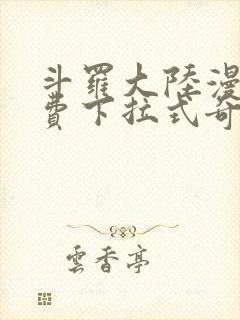 斗羅大陸漫
費下拉式奇
雲香亭